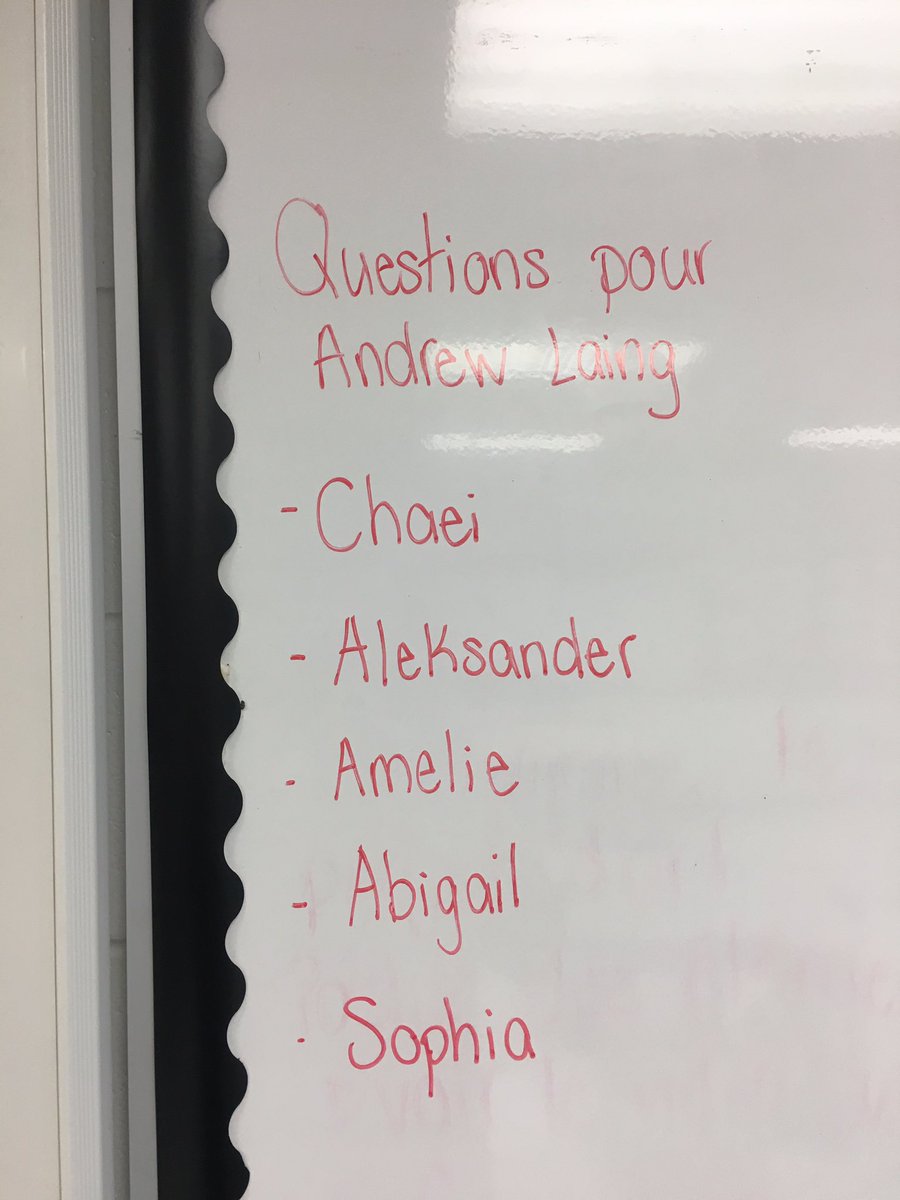 Questions pour
Andrew Laing
- Chaei
- Aleksander
- Amelie
- Abigail
- Sophia